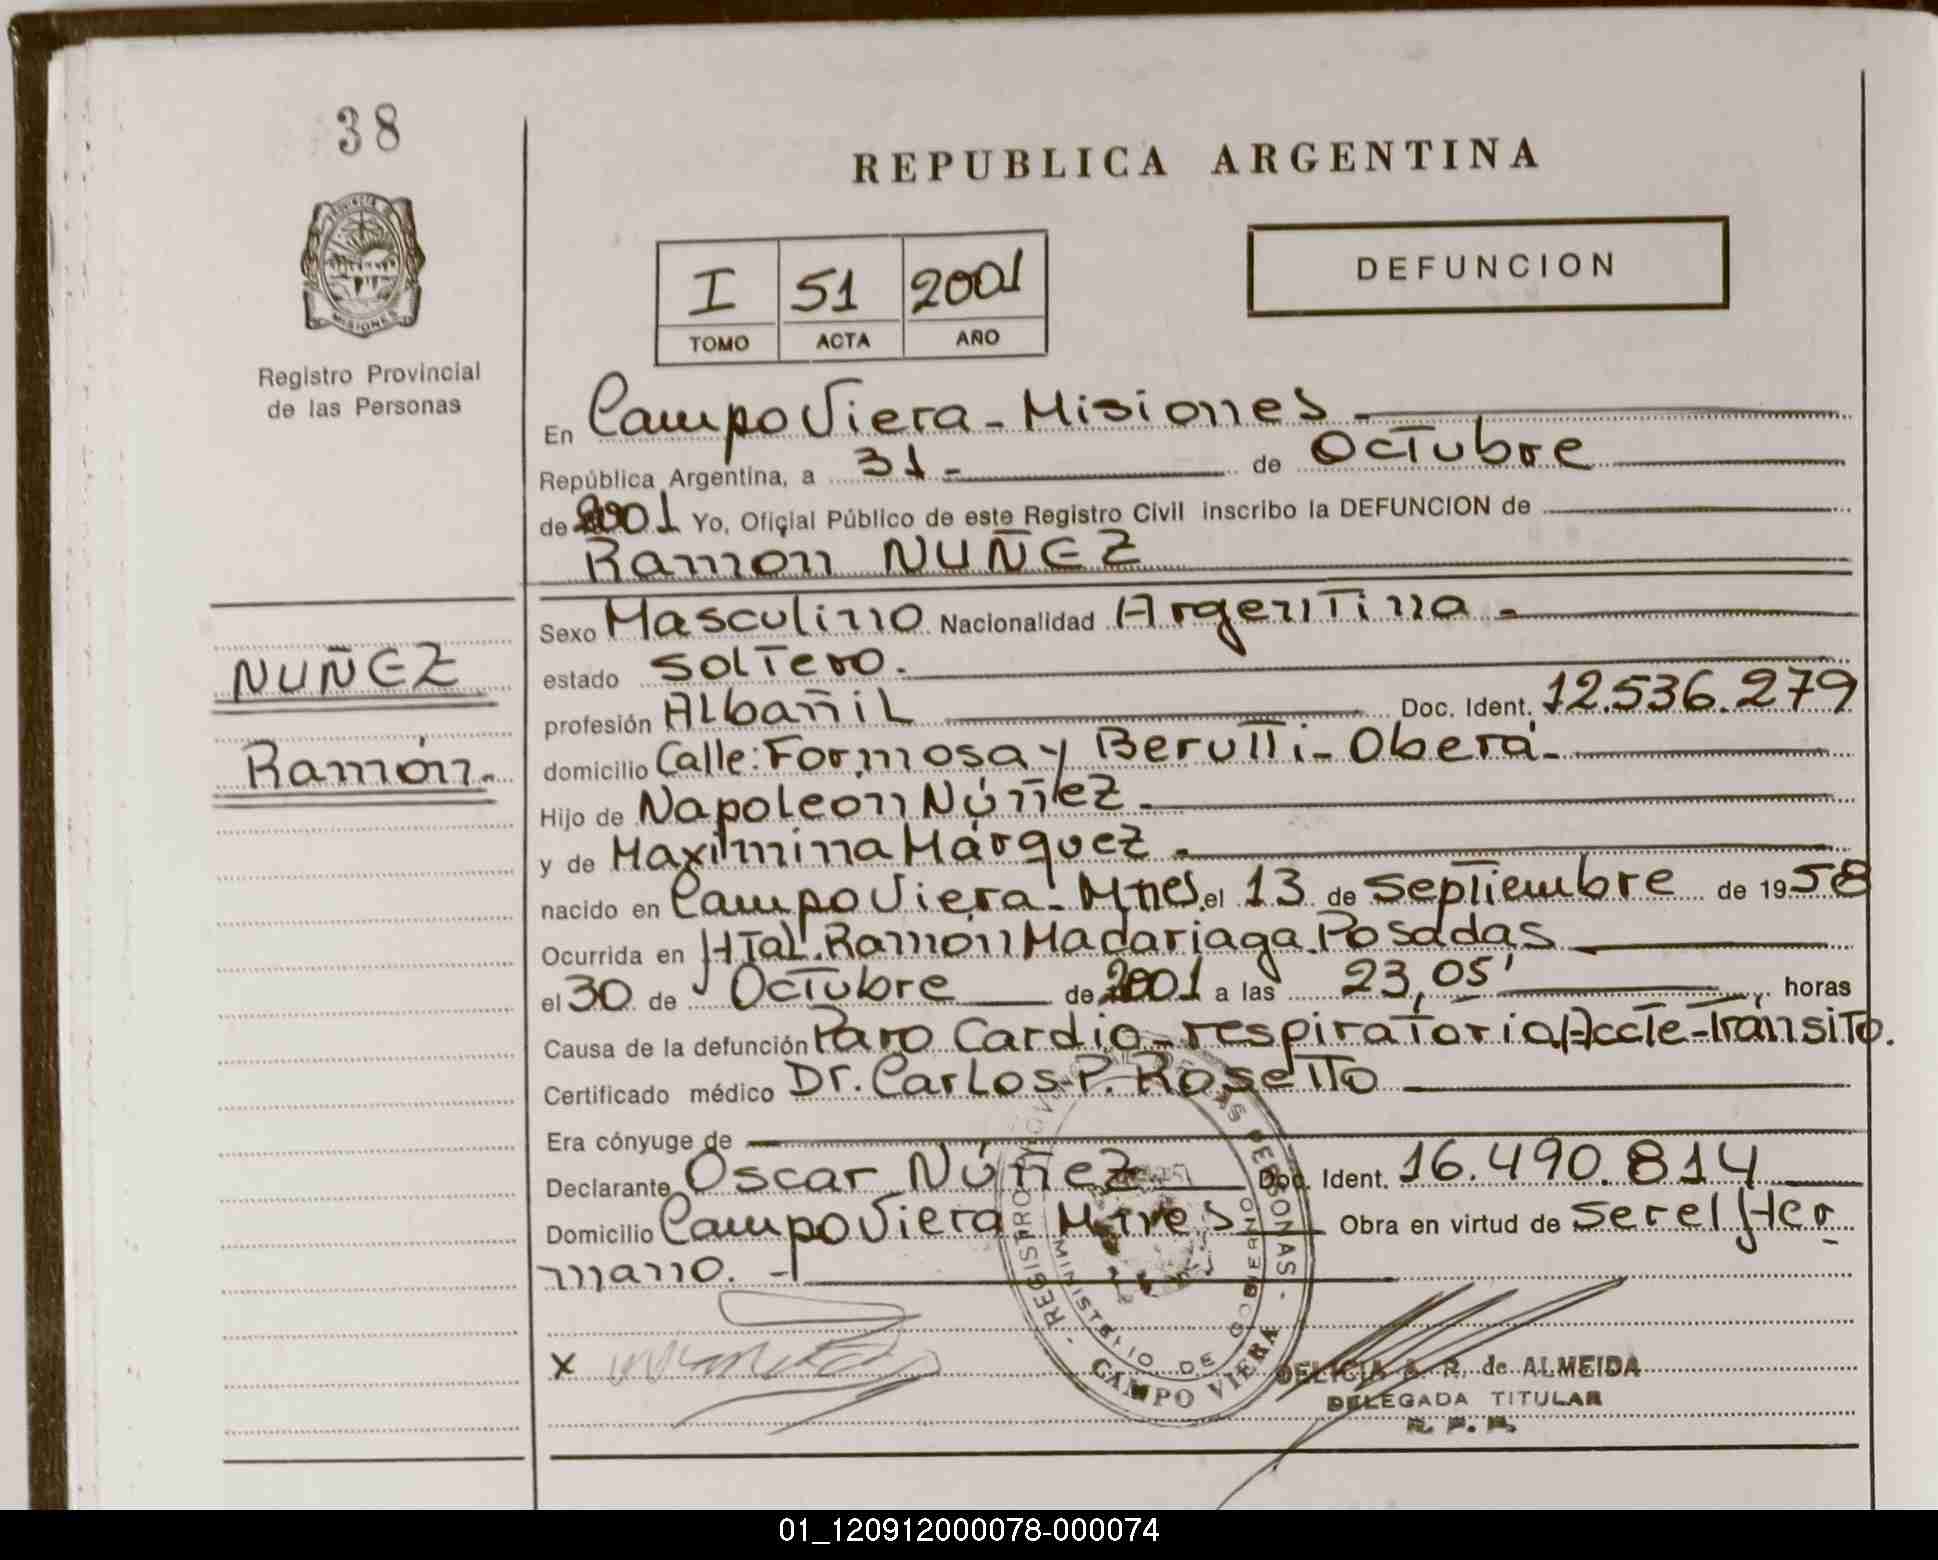 38
REPUBLICA ARGENTINA
PROVINCIA DE
MISIONES
I 51 2001
TOMO ACTA AÑO
DEFUNCION
Registro Provincial
de las Personas
En Campo Viera - Misiones -
República Argentina, a 31 - de Octubre
de 2001 Yo, Oficial Público de este Registro Civil inscribo la DEFUNCION de
Ramon NUÑEZ
NUÑEZ
Ramón.
Sexo Masculino Nacionalidad Argentina -
estado Soltero.
profesión Albañil Doc. Ident. 12.536.279
domicilio Calle: Formosa y Berutti - Oberá -
Hijo de Napoleon Núñez -
y de Maximina Márquez -
nacido en Campo Viera - Mnes. el 13 de Septiembre de 1958
Ocurrida en Htal. Ramón Madariaga. Posadas
el 30 de Octubre de 2001 a las 23,05' horas
Causa de la defunción Paro Cardio-respiratorio/Accte-Tránsito.
Certificado médico Dr. Carlos P. Rosetto
Era cónyuge de
Declarante Oscar Núñez Doc. Ident. 16.490.814
Domicilio Campo Viera Mnes Obra en virtud de ser el Her
mano. -
- REGISTRO PROVINCIAL DE LAS PERSONAS -
MINISTERIO DE GOBIERNO
CAMPO VIERA
X
DELICIA A. R. de ALMEIDA
DELEGADA TITULAR
R. P. P.
01_120912000078-000074